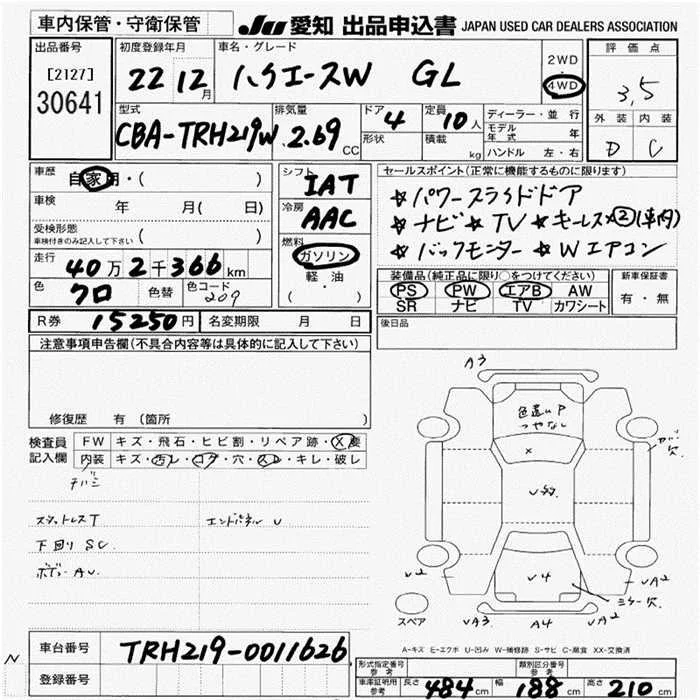 車内保管・守衛保管 JU 愛知 出品申込書 JAPAN USED CAR DEALERS ASSOCIATION
出品番号 初度登録年月 車名・グレード 2WD・4WD 評価点
[2127] 22 12月 ハイエースW GL 3.5
30641 外装 内装
D C
型式 排気量 ドア 4 定員 10人 ディーラー・並行
CBA-TRH219W 2.69 CC 形状 積載 kg モデル年式 年
ハンドル 左・右
車歴 自家用・( ) シフト IAT セールスポイント(正常に機能するものに限ります)
車検 年 月( 日) 冷房 AAC ☆パワースライドドア
受検形態 ( ) ☆ナビ☆TV☆キーレス×②(車内)
車検付きのみ記入して下さい 燃料 ガソリン ☆バックモニター ☆Wエアコン
走行 40万2千366km 軽・油
色 クロ 色替 色コード 209 ( ・ )
装備品(純正品に限り○をつけてください) 新車保証書
PS PW エアB AW 有・無
SR ナビ TV カワシート
R券 15250円 名変期限 月 日 後日品
注意事項申告欄(不具合内容等は具体的に記入して下さい)
修復歴 有(箇所 )
検査員記入欄 FW キズ・飛石・ヒビ割・リペア跡・X要
内装 キズ・汚レ・コゲ・穴・スレ・キレ・破レ
スタットレスT エンドパネル U
下回り SC
ボデー AU
A3
色違いP
つやなし
×
U
欠
U2 U4 UA2
欠
スペア UA3 A4 UA2
A-キズ E-エクボ U-凹み W-補修跡 S-サビ C-腐食 XX-交換済
車台番号 TRH219-0011626
N
登録番号
型式指定番号 参考 類別区分番号 参考
車庫証明用 参考 長さ 484cm 幅 188cm 高さ 210cm